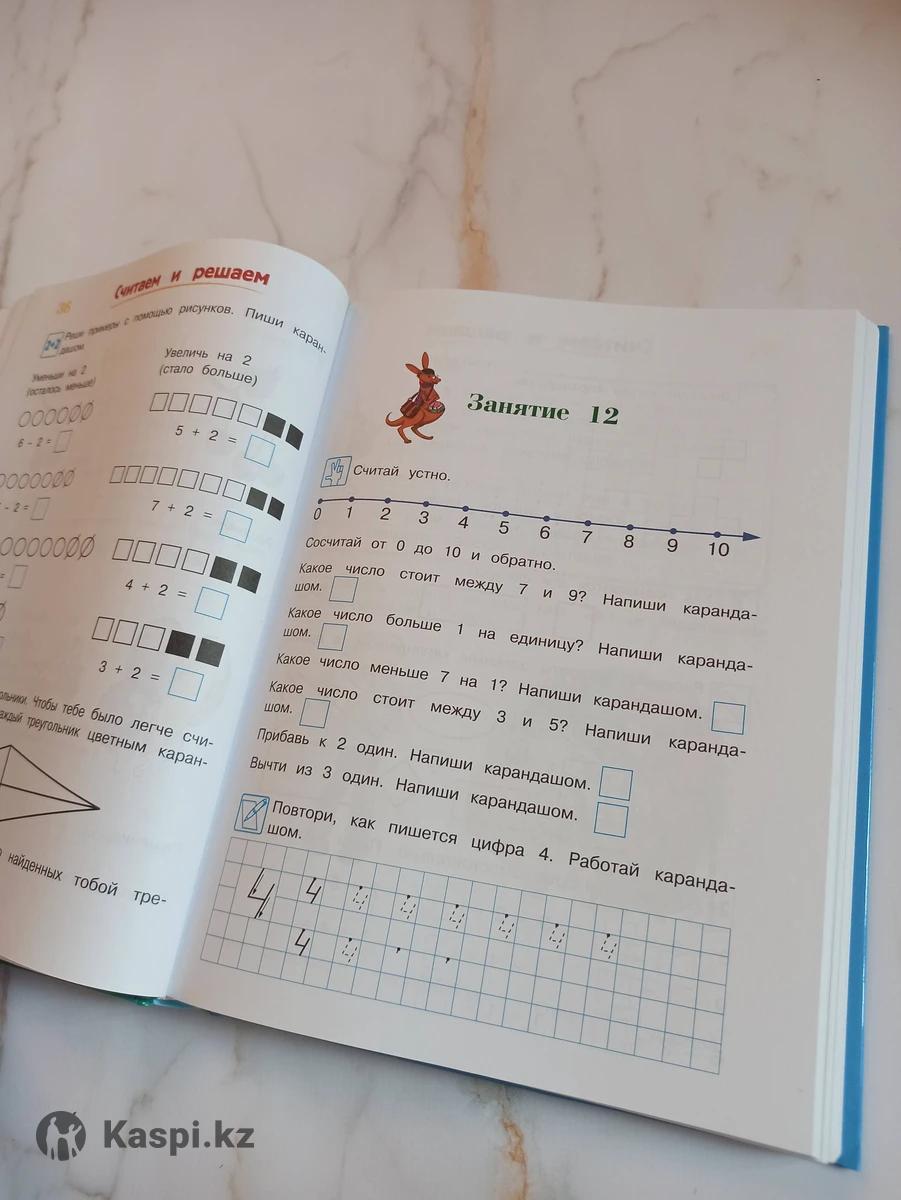 36
Считаем и решаем
2+2
Реши примеры с помощью рисунков. Пиши каран-
дашом.
Уменьши на 2
(осталось меньше)
6 - 2 =
- 2 =
=
Увеличь на 2
(стало больше)
5 + 2 =
7 + 2 =
4 + 2 =
3 + 2 =
Чтобы тебе было легче счи-
каждый треугольник цветным каран-
найденных тобой тре-
Занятие 12
Считай устно.
0 1 2 3 4 5 6 7 8 9 10
Сосчитай от 0 до 10 и обратно.
Какое число стоит между 7 и 9? Напиши каранда-
шом.
Какое число больше 1 на единицу? Напиши каранда-
шом.
Какое число меньше 7 на 1? Напиши карандашом.
Какое число стоит между 3 и 5? Напиши каранда-
шом.
Прибавь к 2 один. Напиши карандашом.
Вычти из 3 один. Напиши карандашом.
Повтори, как пишется цифра 4. Работай каранда-
шом.
4 4 4 4 4 4 4 4
4 4
Kaspi.kz